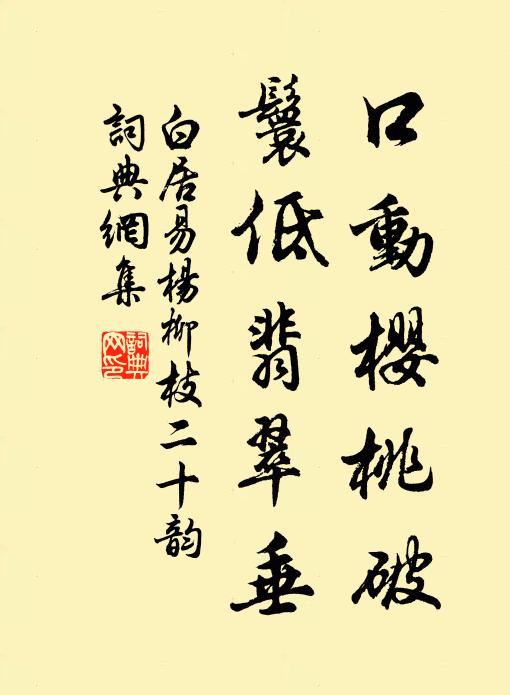 口動櫻桃破
鬟低翡翠垂
白居易楊柳枝二十韵
詞典網集
詞典网印